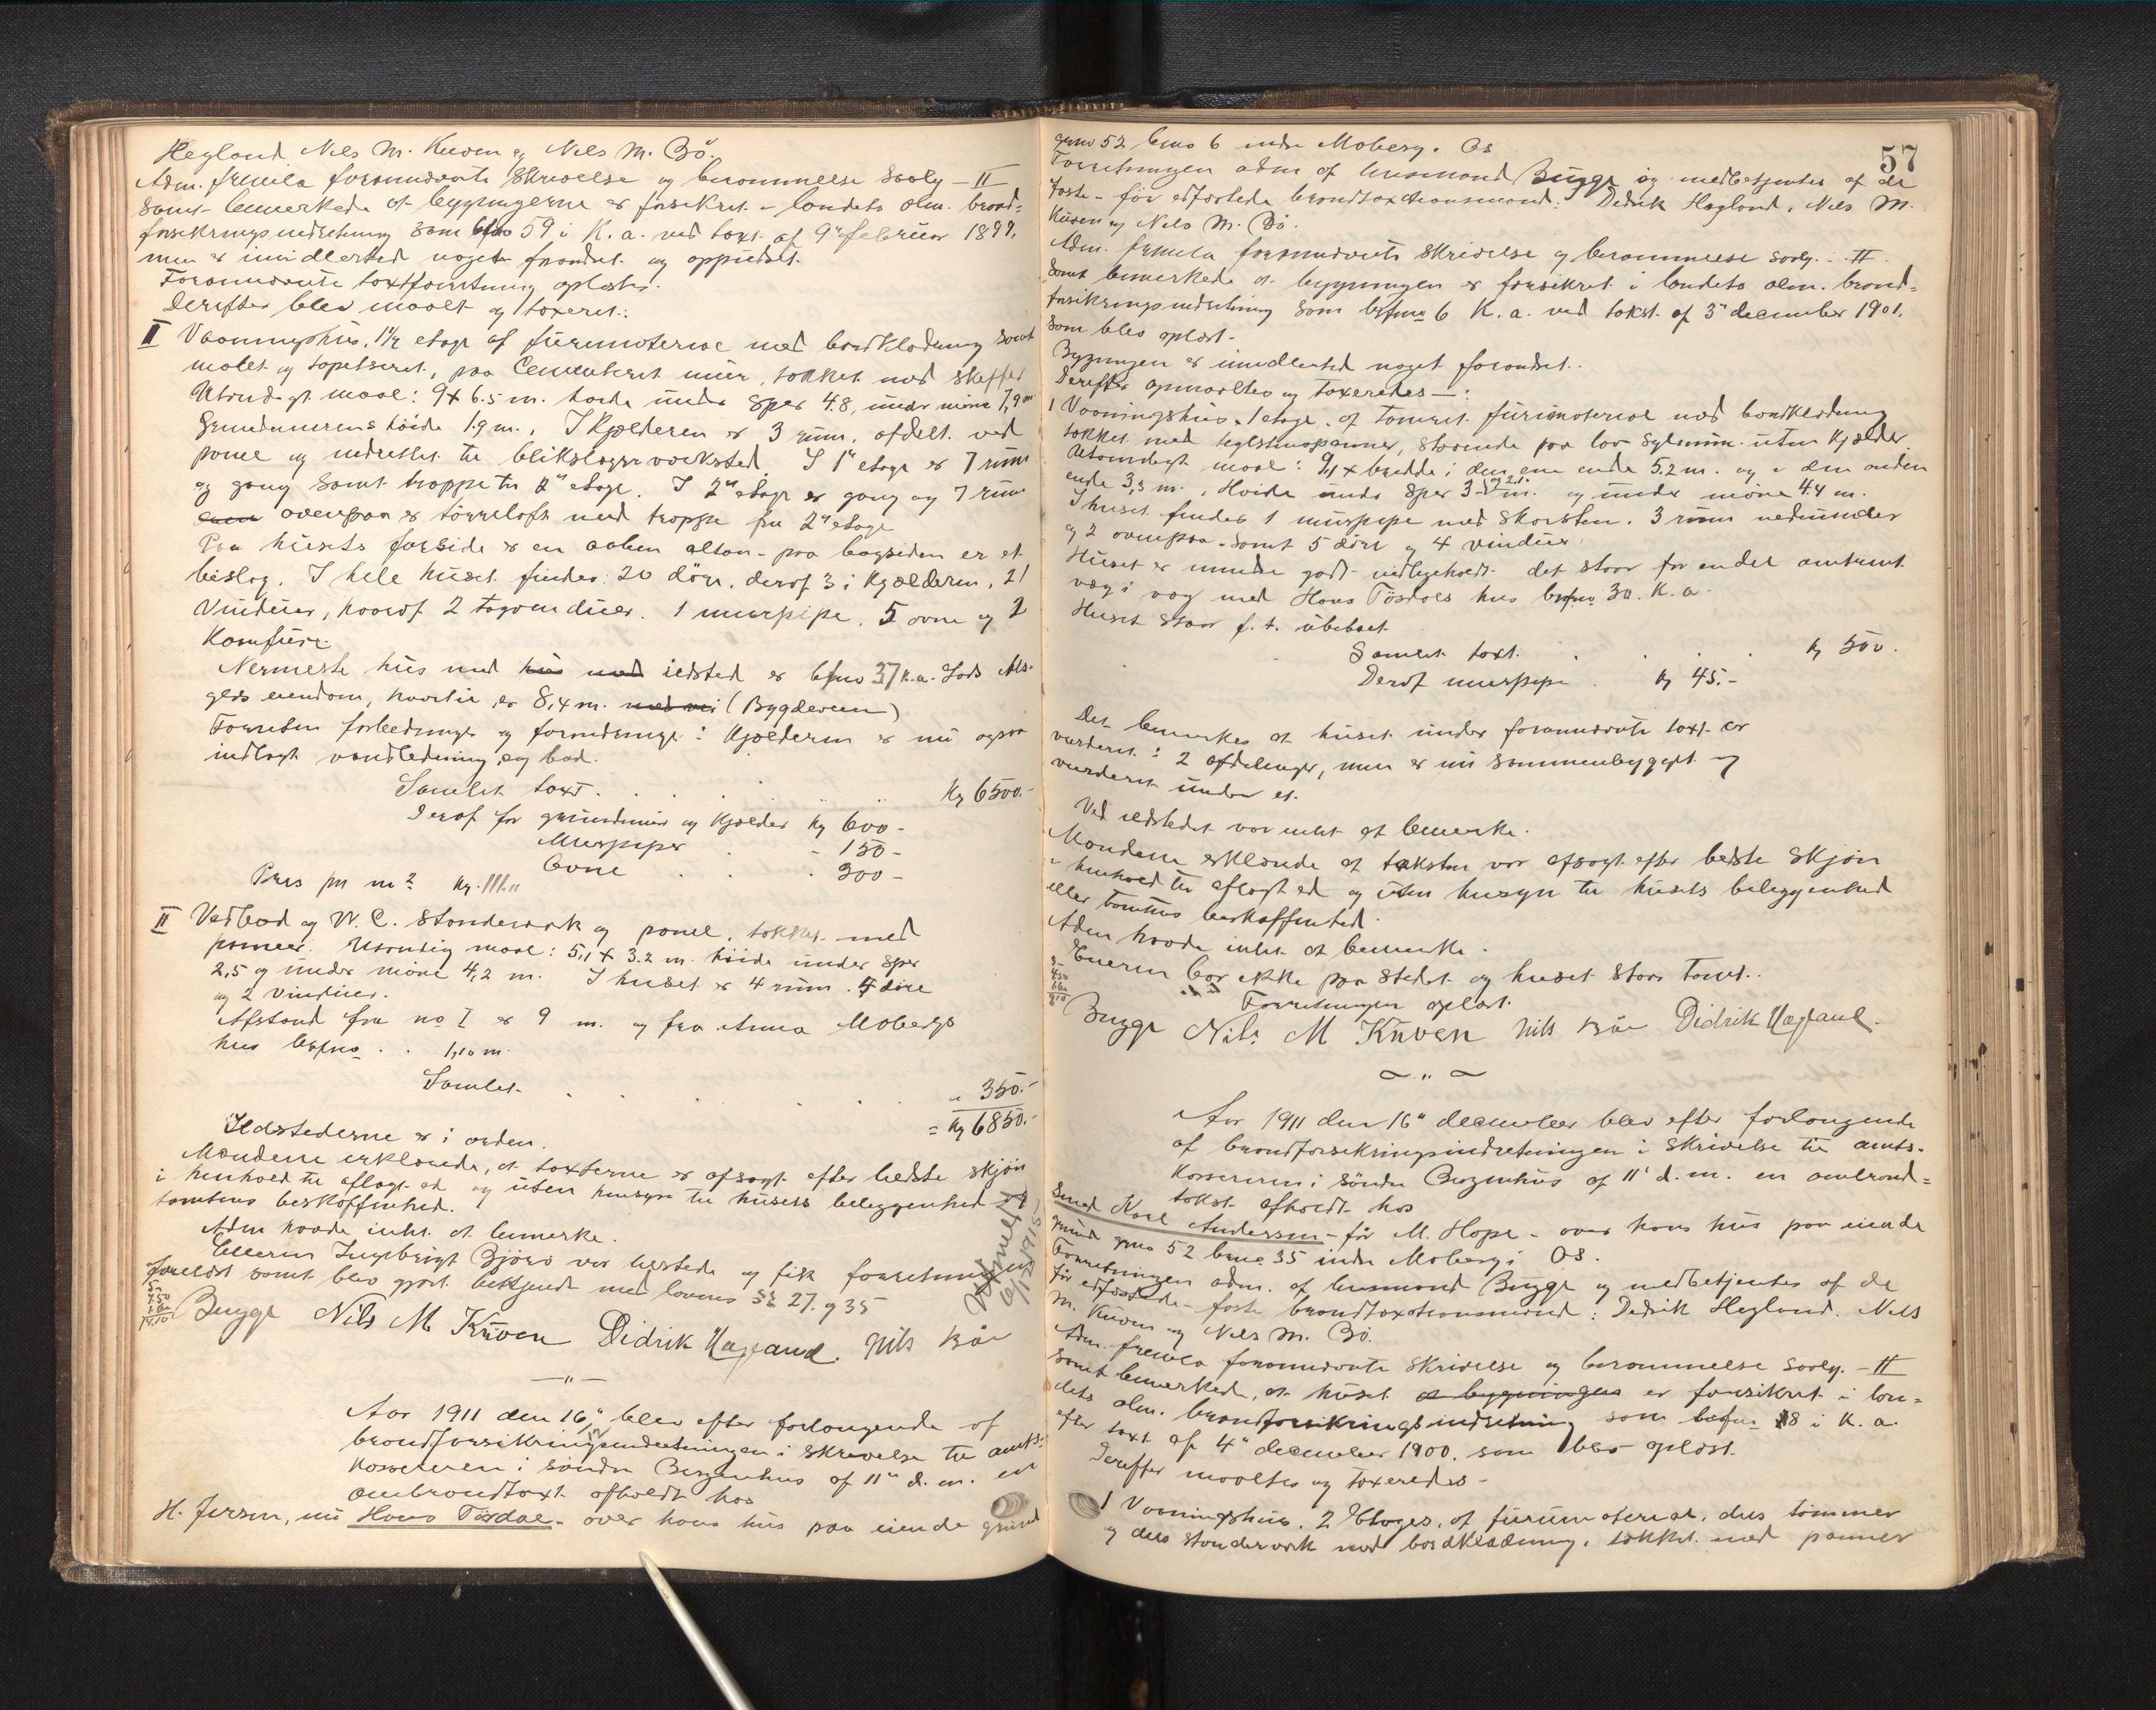 Hegland Nils M. Kuven og Nils M. Bö.
Adm. fremla forannævnte skrivelse og berammelse saaly – II
samt bemerkede at bygningerne er forsikret i landets alm. brand=
forsikringsindretning som 59 i K. a. ved taxt af 9de februar 1899,
men er imidlertid noget forandret og oppudset.
Foranævnte taxtforretning oplæstes.
Derefter blev maalt og taxeret:
II Vaaningshus, 1½ etage af furumateriae med bordklædning samt
malet og tapetseret, paa Cementeret mur, tækket med skeffer
Utvendigt maal: 9 x 6.5 m. høide under sper 4.8, under møne 7,9 m
Grundmurens høide 1.9 m. I Kjælderen er 3 rum, afdelt ved
panel og indrettet til blikslagerverksted. I 1ste etage er 7 rum
og gang samt trappe til 2den etage. I 2den etage er gang og 7 rum
ovenpaa er tørreloft med trappe fra 2den etage
Paa husets forside er en aaben altan – paa bagsiden er et
bislag. I hele huset findes: 20 döre, deraf 3 i Kjælderen, 21
Vinduer, hvoraf 2 tagvinduer. 1 murpipe, 5 ovne og 2
Komfure.
Nermeste hus med hus med ildsted er bfno 37 K.a. Lods Als-
gers eiendom, hvortil er 8,4 m. med vei (Bygdeveien)
Foruten forbedringer og forandringer: Kjælderen er nu ogsaa
indlagt vandledning og bad.
Samlet taxt . . . . . Kr 6500.-
Deraf for grundmur og Kjælder Kr 600 -
Murpiper . - 150 -
Ovne . . . 300 -
Pris pr m² Kr. 111.,,
II Vedbod og W. C. Standerværk og panel, tækket med
panner. Utvendig maal: 5,1 x 3.2 m. höide under sper
2,5 og under möne 4,2 m. I huset er 4 rum. 4 döre
og 2 vinduer.
Afstand fra no I er 9 m. og fra Anna Mobergs
hus bfno . . 1,10 m.
Samlet . . . . . „ 350.-
= Kr 6850.-
Ildstederne er i orden.
Mændene erklærede, at taxterne er afsagt efter bedste skjön
i henhold til aflagt ed og uten hensyn til husets beleggenhed og
tomtens beskaffenhed.
Adm havde intet at bemerke.
Eieren Ingebrigt Björö var tilstede og fik forretningen
forelæst samt blev gjort bekjendt med lovens §§ 27. og 35
Bugge Nils M Kuven Didrik Hægland. Nils Bö
— „ —
Aar 1911 den 16de blev efter forlangende af
brandforsikringsindretningen i skrivelse til amts-
kassereren i söndre Bergenhus af 11te d. m. en
ombrandtaxt afholdt hos
H. Jersen, nu Hans Tösdal – over hans hus paa eiende grund
57
gno 52 bno 6 indre Moberg. Os
Forretningen adm af lensmand Bugge og medbetjentes af de
faste – för edfæstede brandtaxationsmænd: Dedrik Hegland, Nils M.
Kuven og Nils M. Bö.
Adm. fremla foranævnte skrivelse og berammelse saaly. – II.
Samt bemerkede at bygningen er forsikret i landets alm. brand=
forsikringsindretning som bfno 6 K. a. ved takst af 3de december 1901,
som blev oplæst.
Bygningen er imidlertid noget forandret.
Derefter opmaaltes og taxeredes —:
1 Vaaningshus, 1 etage, af tömret furumateriae med bordklædning
tækket med teglstenspanner, staaende paa lav sylmur uten kjælder
Utvendigt maal: 9,1 x bredde i den ene ende 5.2 m. og i den anden
ende 3,3 m., Höide under sper 3- og 2,1 m. og under möne 4.4 m.
I huset findes 1 murpipe med skorsten. 3 rum nedunder
og 2 ovenpaa. Samt 5 döre og 4 vinduer.
Huset er mindre godt vedligeholdt det staar for endel omtrent
væg i væg med Hans Tösdals hus bfno 30. K. a.
Huset staar f. t. ubeboet.
Samlet taxt . . . . Kr 500.
Deraf murpipe . Kr 45.-
Det bemerkes at huset under foranævnte taxt er
vurderet i 2 afdelinger, men er nu sammenbygget og
vurderet under et.
Ved ildstedet var intet at bemerke.
Mændene erklærede at taksten var afsagt efter bedste skjön
i henhold til aflagt ed og uten hensyn til husets beleggenhed
eller tomtens beskaffenhed.
Adm havde intet at bemerke.
Eieren bor ikke paa stedet og huset staar tomt..
Forretningen oplæst.
Bugge Nils M Kuven Nils Bö Didrik Hægland.
~ „ ~
Aar 1911 den 16de december blev efter forlangende
af brandforsikringsindretningen i skrivelse til amts-
kassereren i söndre Bergenhus af 11te d. m. en ombrand=
takst afholdt hos
Smed Karl Anderssen – för M. Hope – over hans hus paa eiende
grund gno 52 bno 35 indre Moberg i Os.
Forretningen adm. af lensmand Bugge og medbetjentes af de
för edfæstede – faste brandtaxationsmænd: Dedrik Hegland. Nils
M. Kuven og Nils M. Bö.
Adm. fremla foranævnte skrivelse og berammelse saaly. – II
samt bemerkede, at huset at bygningen er forsikret i lan=
dets alm. brandforsikringsindretning som bfno 18 i K. a.
efter taxt af 4de december 1900, som blev oplæst.
Derefter maaltes og taxeredes –
1 Vaaningshus, 2 Etages, af furumateriae, dels tömmer
og dels standerværk med bordklædning, tækket med panner